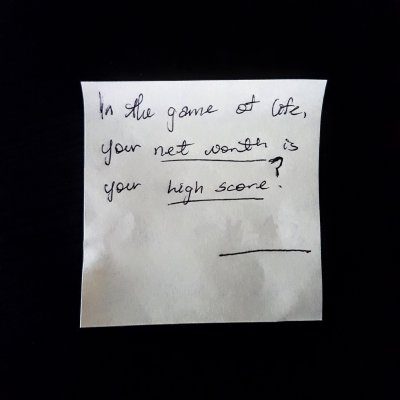 In the game of life,
your net worth is
your high score?